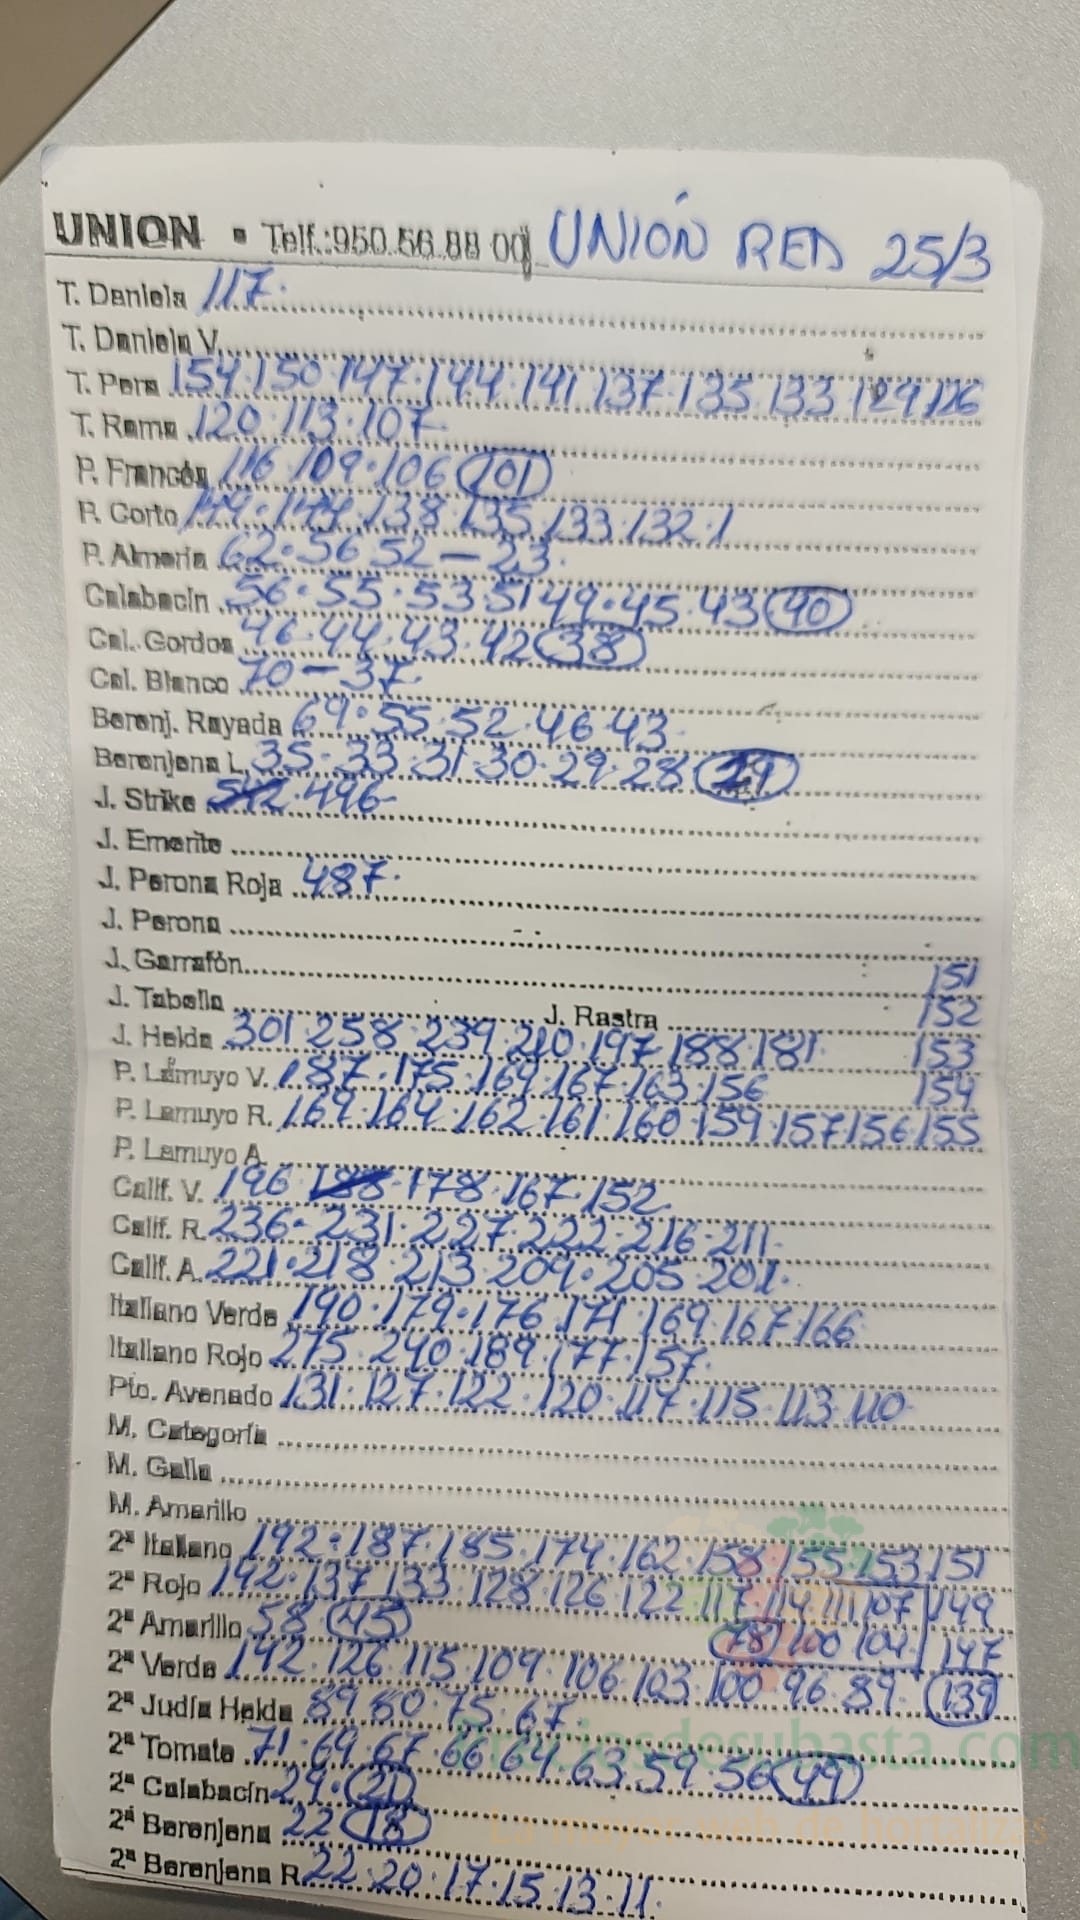 UNION • Telf.:950.56.88 00 UNIÓN RED 25/3
T. Daniela 117.
T. Daniela V.
T. Pera 154.150.147.144.141.137.135.133.129.126
T. Rama 120.113.107
P. Francés 116.109.106 (101)
P. Corto 149.144.138.135.133.132.1
P. Almería 62.56.52 — 23.
Calabacín 56.55.53.51.49.45.43 (40)
Cal. Gordos 46.44.43.42 (38)
Cal. Blanco 70 — 37
Berenj. Rayada 69.55.52.46.43.
Berenjena L. 35.33.31.30.29.28
J. Strike 496
J. Emerite
J. Perona Roja 487.
J. Perona
J. Garrafón 151
J. Tabella J. Rastra 152
J. Helda 301.258.239.210.197.188.181. 153
P. Lamuyo V. 187.175.169.167.163.156 154
P. Lamuyo R. 169.164.162.161.160.159.157.156.155
P. Lamuyo A.
Calif. V. 196 188.178.167.152.
Calif. R. 236.231.227.222.216.211.
Calif. A. 221.218.213.209.205.201.
Italiano Verde 190.179.176.171.169.167.166
Italiano Rojo 275.240.189.177.157.
Pto. Avenado 131.127.122.120.117.115.113.110
M. Categoría
M. Galia
M. Amarillo
2ª Italiano 192.187.185.174.162.158.155.153.151
2ª Rojo 142.137.133.128.126.122.117.114.111.107 149
2ª Amarillo 58 (45) (78) 100 104 147
2ª Verde 142.126.115.109.106.103.100.96.89. (139)
2ª Judía Helda 89.80.75.67
2ª Tomate 71.69.67.66.64.63.59.56 (49)
2ª Calabacín 29. (21)
2ª Berenjena 22 (18)
2ª Berenjena R. 22.20.17.15.13.11.
preciosdesubasta.com
La mayor web de hortalizas